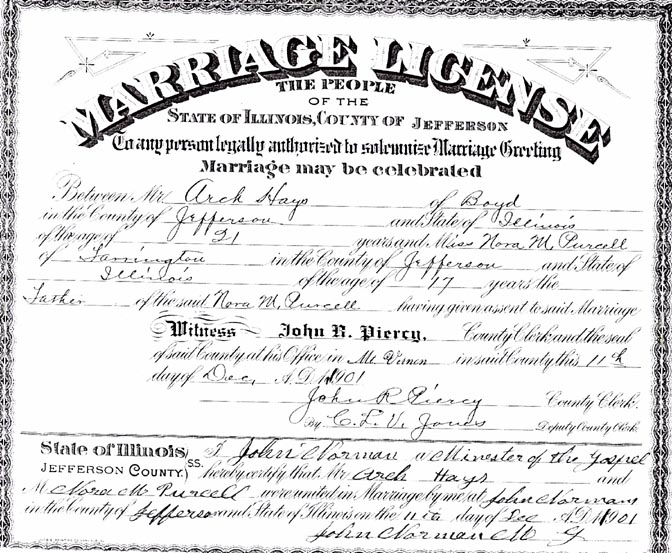 MARRIAGE LICENSE
THE PEOPLE
OF THE
STATE OF ILLINOIS, COUNTY OF JEFFERSON
To any person legally authorized to solemnize Marriage Greeting
Marriage may be celebrated
Between Mr. Arch Hays of Boyd
in the County of Jefferson and State of Illinois
of the age of 21 years and Miss Nora M. Purcell
of Farrington in the County of Jefferson and State of
Illinois of the age of 17 years the
Father of the said Nora M. Purcell having given assent to said Marriage
Witness John R. Piercy, County Clerk and the seal
of said County at his Office in Mt Vernon in said County this 11th
day of Dec, A.D. 1901
John R Piercy County Clerk.
By C.L.V. Jones Deputy County Clerk
State of Illinois
JEFFERSON COUNTY. } SS. I John Norman a Minester of the Gospel
hereby certify that Mr Arch Hays and
M Nora M Purcell were united in Marriage by me at John Normans
in the County of Jefferson and State of Illinois on the day of Dec A.D. 1901
John Norman M G